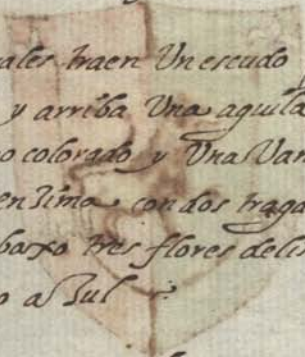 ales traen Un escudo
y arriba Una aguila
o colorado y Una Van
enZima con dos traga
baxo tres flores delis
o aZul